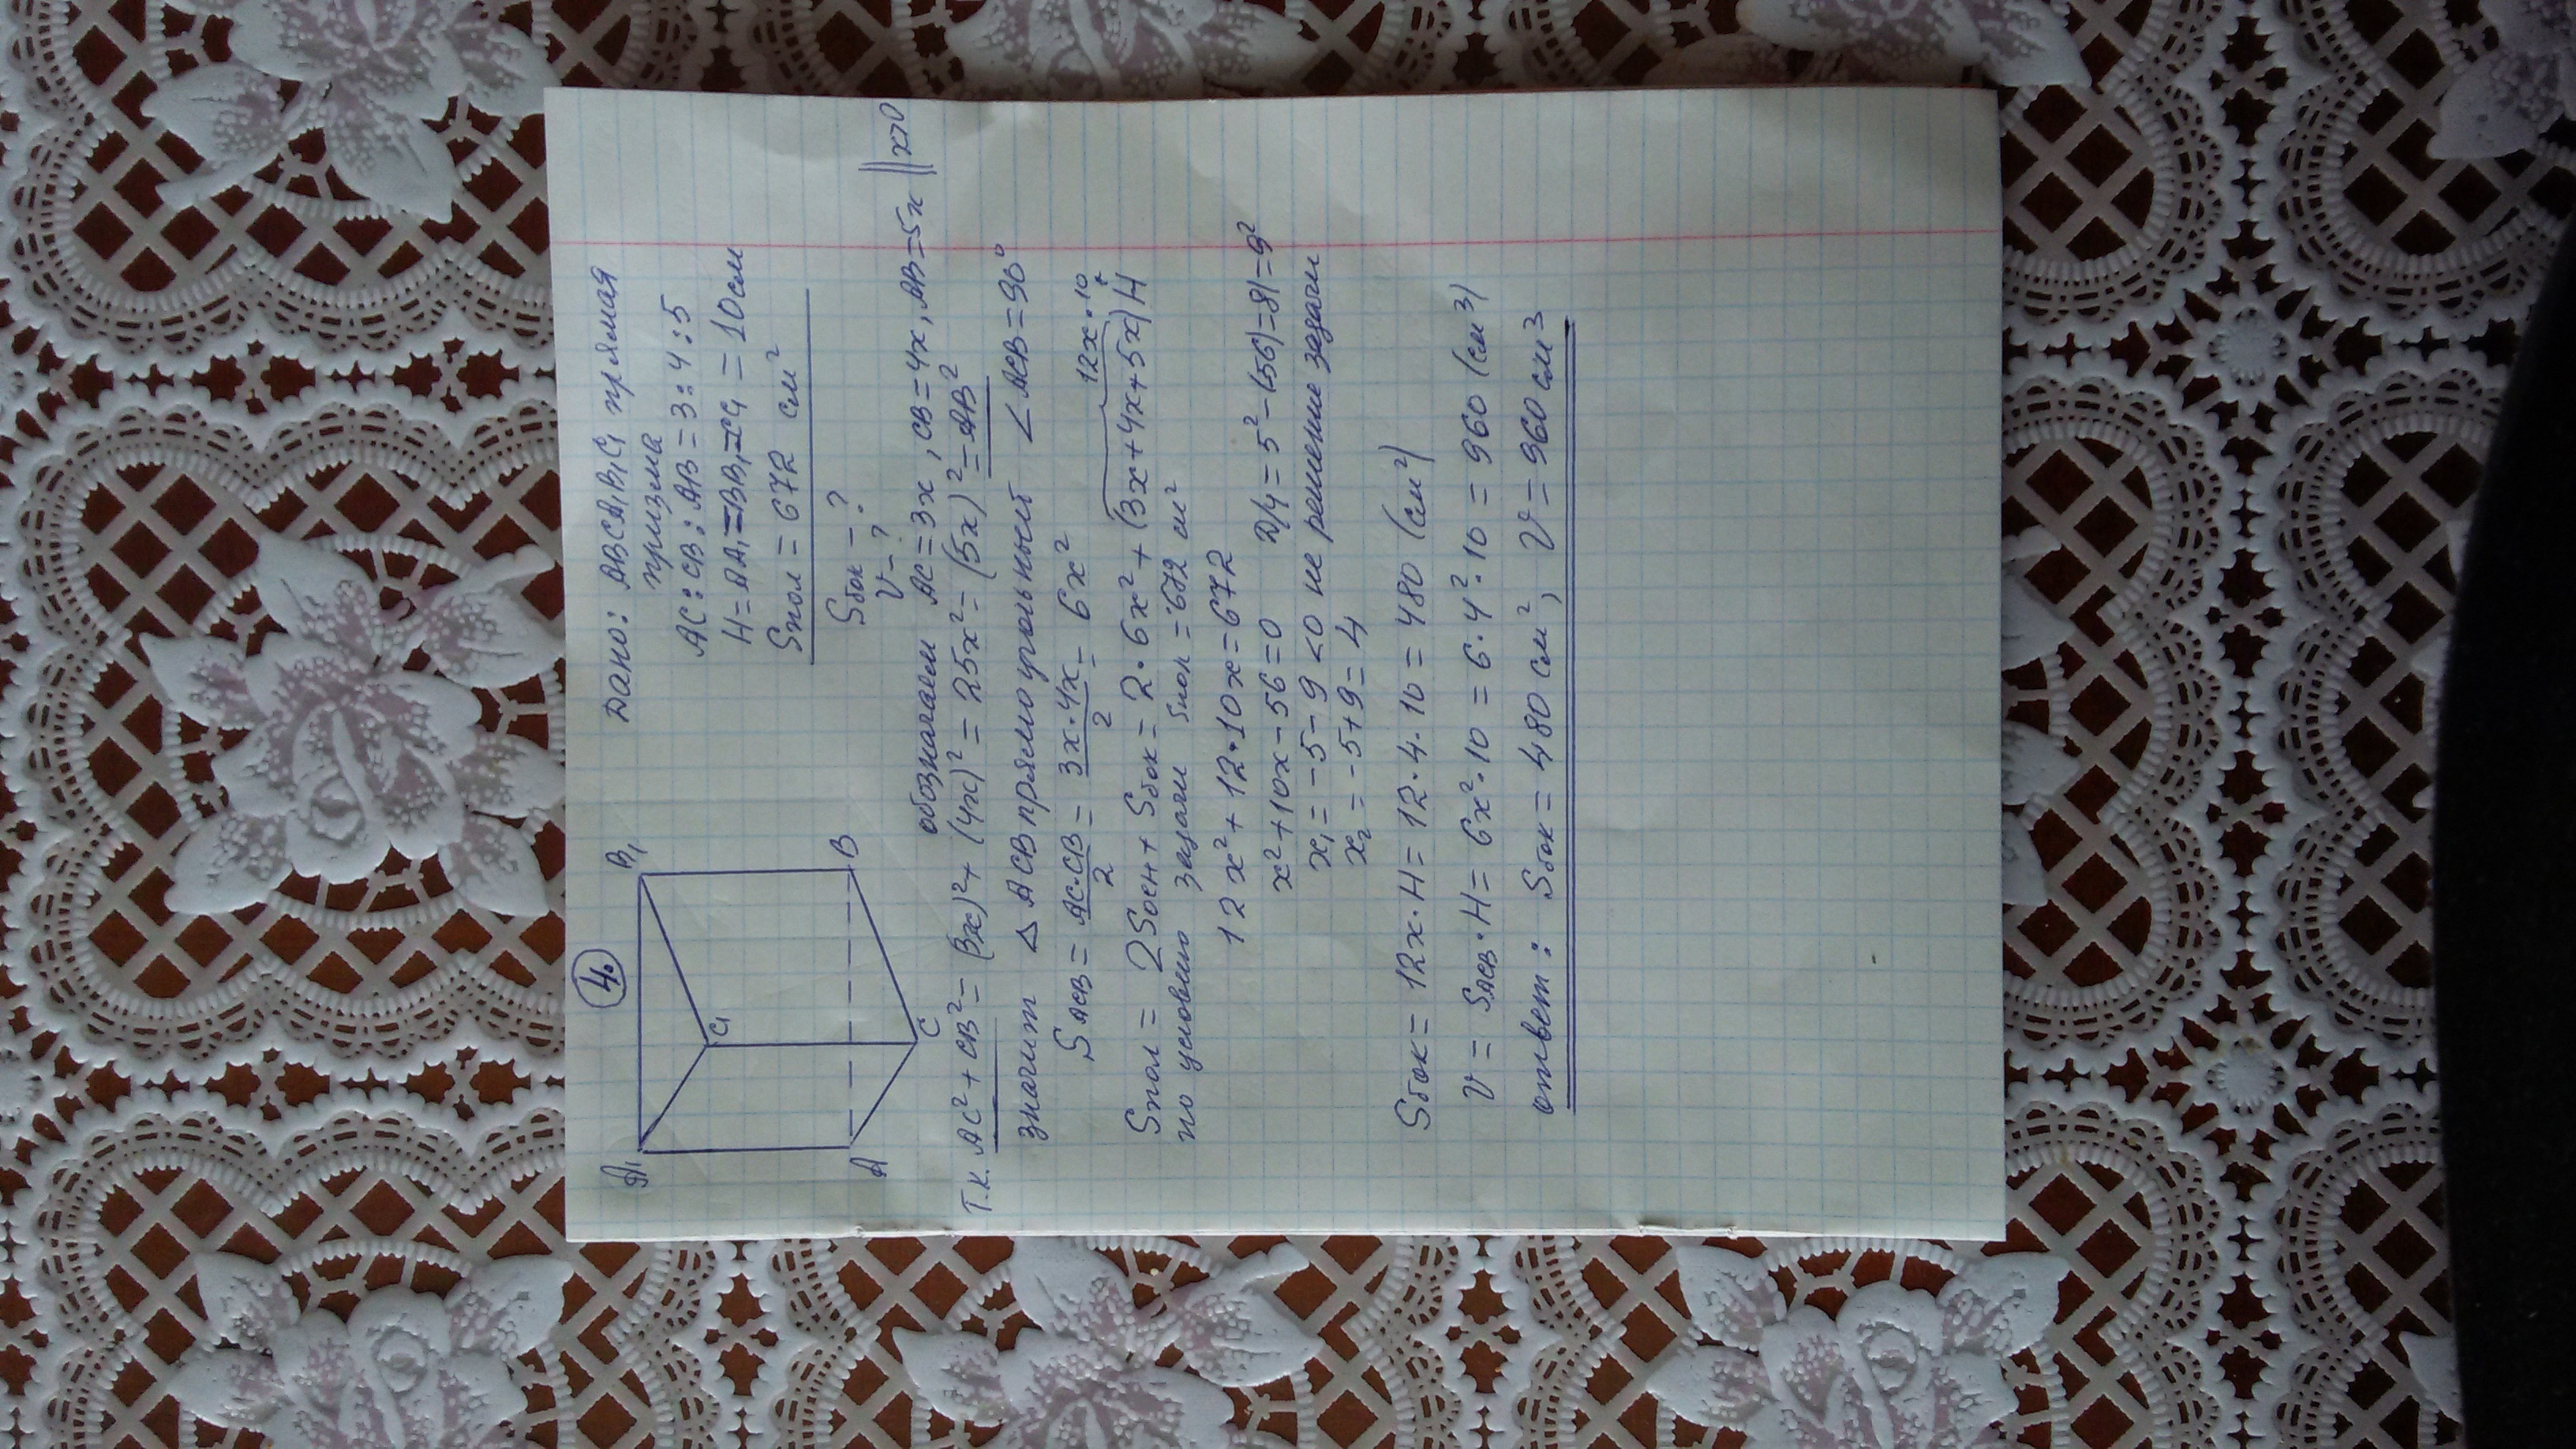 4.
A₁ B₁
C₁
A B
C
Дано: ABCA₁B₁C₁ прямая
призма
AC : CB : AB = 3 : 4 : 5
H = AA₁ = BB₁ = CC₁ = 10 см
Sпол = 672 см²
Sбок - ?
V - ?
обозначаем AC = 3x, CB = 4x, AB = 5x || x>0
Т.к. AC² + CB² = (3x)² + (4x)² = 25x² = (5x)² = AB²
значит △ ACB прямоугольный ∠ACB = 90°
S ACB = AC·CB/2 = 3x·4x/2 = 6x²
12x·10
Sпол = 2Sосн + Sбок = 2·6x² + (3x+4x+5x)H
по условию задачи Sпол = 672 см²
12x² + 12·10x = 672
x² + 10x - 56 = 0 D/4 = 5² - (-56) = 81 = 9²
x₁ = -5 - 9 < 0 не решение задачи
x₂ = -5 + 9 = 4
Sбок = 12x·H = 12·4·10 = 480 (см²)
V = S ACB·H = 6x²·10 = 6·4²·10 = 960 (см³)
ответ: Sбок = 480 см², V = 960 см³